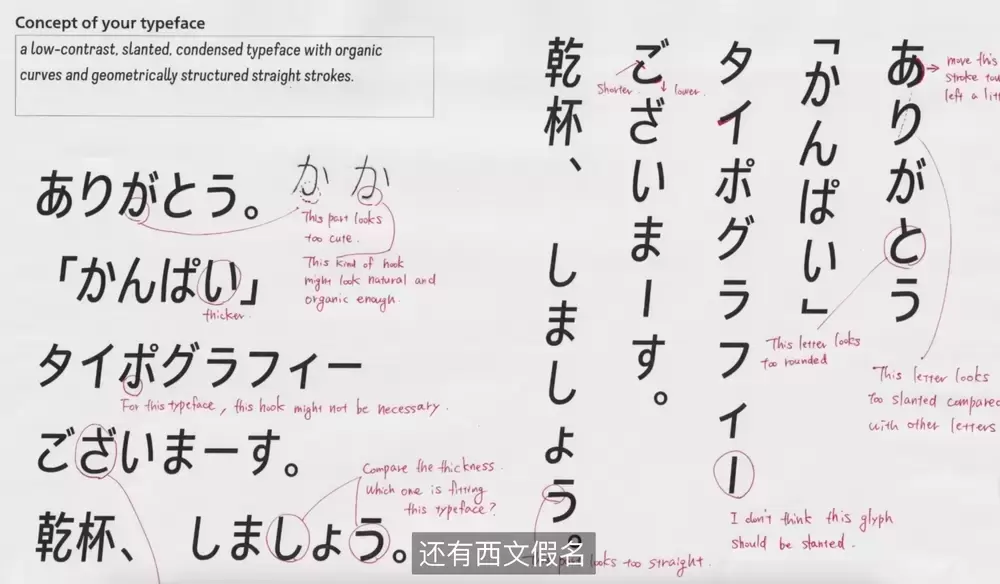 Concept of your typeface
a low-contrast, slanted, condensed typeface with organic
curves and geometrically structured straight strokes.
ありがとう。
か か
This part looks
too cute.
This kind of hook
might look natural and
organic enough.
「かんぱい」
thicker.
タイポグラフィー
For this typeface, this hook might not be necessary.
ございまーす。
Compare the thickness.
Which one is fitting
this typeface?
乾杯、 しましょう。
ありがとう
move this
stroke
left a
「かんぱい」
タイポグラフィー
ございまーす。
Shorter.
lower.
乾杯、 しましょう。
This letter looks
too rounded
This letter looks
too slanted compared
with other letters
I don't think this glyph
should be slanted.
looks too straight.
还有西文假名